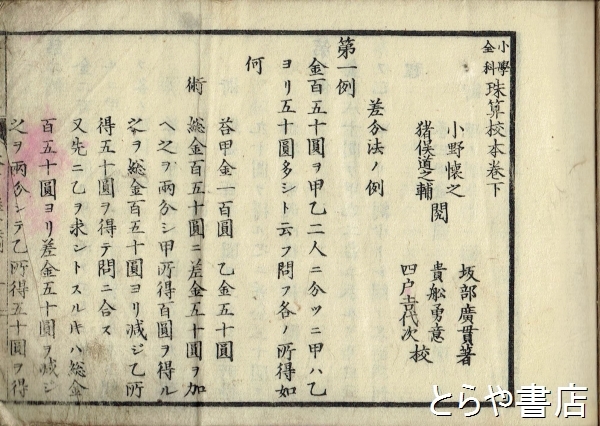 小學全科 珠算校本巻下
坂部廣貫著
小野懷之
猪俣道之輔 閲
貴舩勇意
四戸吉代次 校
差分法ノ例
第一例
金百五十圓ヲ甲乙二人ニ分ツニ甲ハ乙
ヨリ五十圓多シト云フ問フ各ノ所得如
何
荅甲金一百圓 乙金五十圓
術 総金百五十圓ニ差金五十圓ヲ加
ヘ之ヲ両分シ甲所得百圓ヲ得ル
之ヲ総金百五十圓ヨリ減ジ乙所
得五十圓ヲ得テ問ニ合ス
又先ニ乙ヲ求ントスルキハ総金
百五十圓ヨリ差金五十圓ヲ減シ
之ヲ両分シテ乙所得五十圓ヲ得
とらや書店